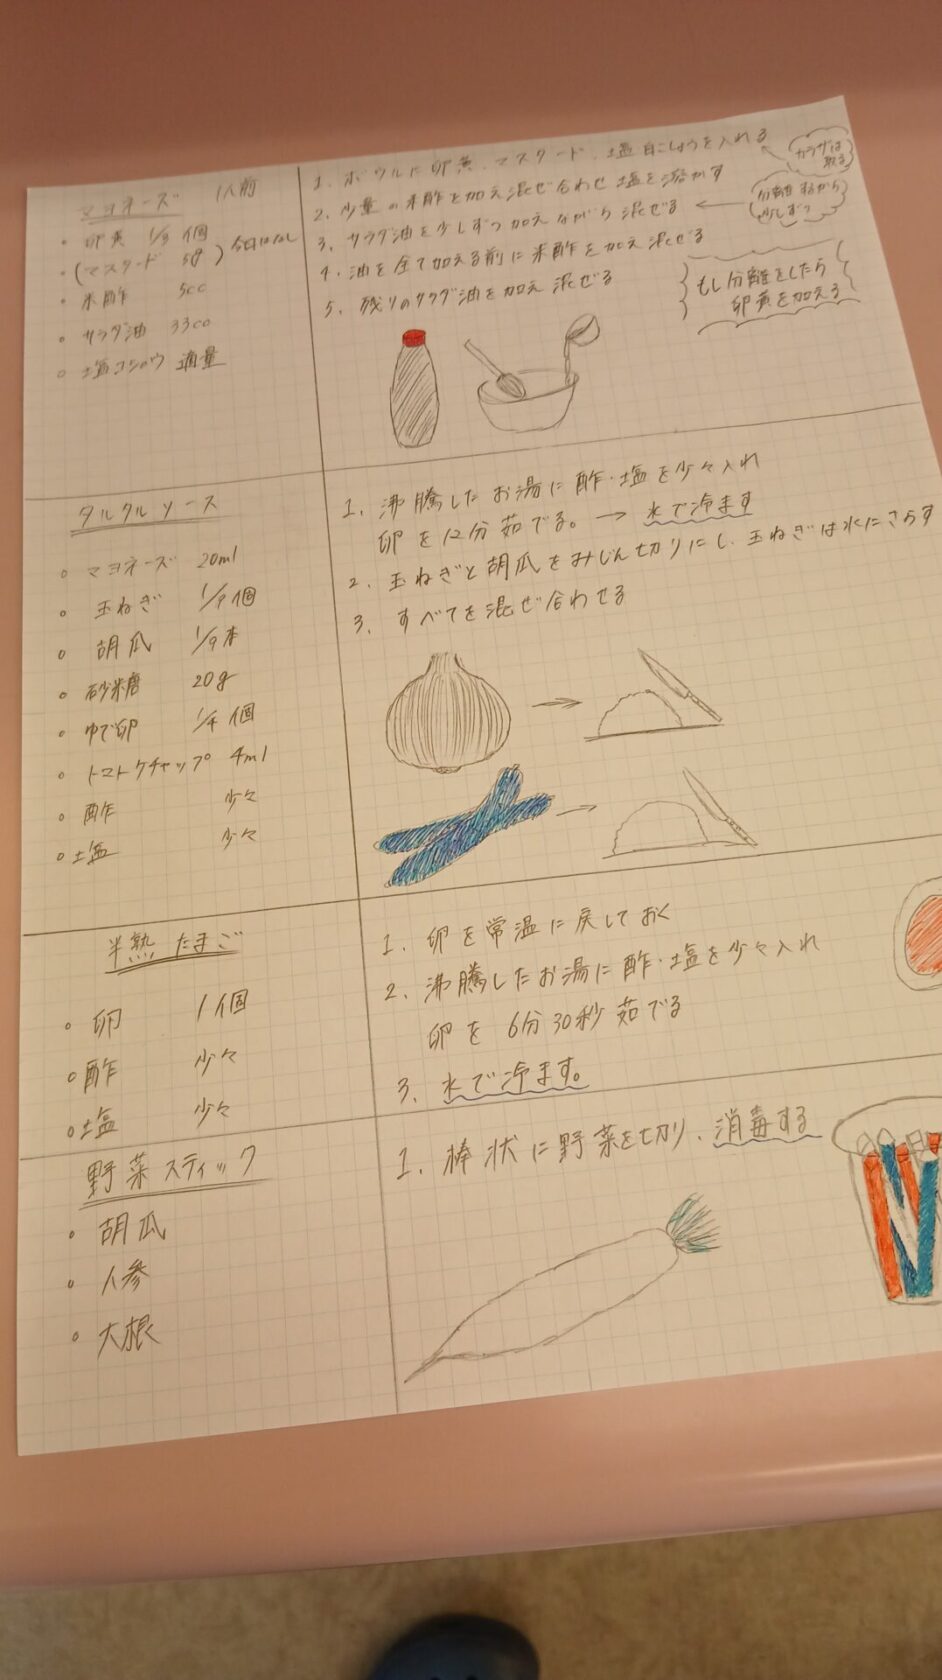 マヨネーズ 1人前
・卵黄 1/3個
・(マスタード 5g) 今日はなし
・米酢 5cc
・サラダ油 33cc
・塩コショウ 適量
1. ボウルに卵黄、マスタード、塩白こしょうを入れる
カラザは取る
2. 少量の米酢を加え混ぜ合わせ塩を溶かす
3. サラダ油を少しずつ加えながら混ぜる
分離するから
少しずつ
4. 油を全て加える前に米酢を加え混ぜる
5. 残りのサラダ油を加え混ぜる
もし分離をしたら
卵黄を加える
タルタルソース
・マヨネーズ 20ml
・玉ねぎ 1/9個
・胡瓜 1/9本
・砂糖 20g
・ゆで卵 1/4個
・トマトケチャップ 4ml
・酢 少々
・塩 少々
1. 沸騰したお湯に酢・塩を少々入れ
卵を12分茹でる。→ 水で冷ます
2. 玉ねぎと胡瓜をみじん切りにし、玉ねぎは水にさらす
3. すべてを混ぜ合わせる
半熟たまご
・卵 1個
・酢 少々
・塩 少々
1. 卵を常温に戻しておく
2. 沸騰したお湯に酢・塩を少々入れ
卵を6分30秒茹でる
3. 水で冷ます。
野菜スティック
・胡瓜
・人参
・大根
1. 棒状に野菜を切り、消毒する